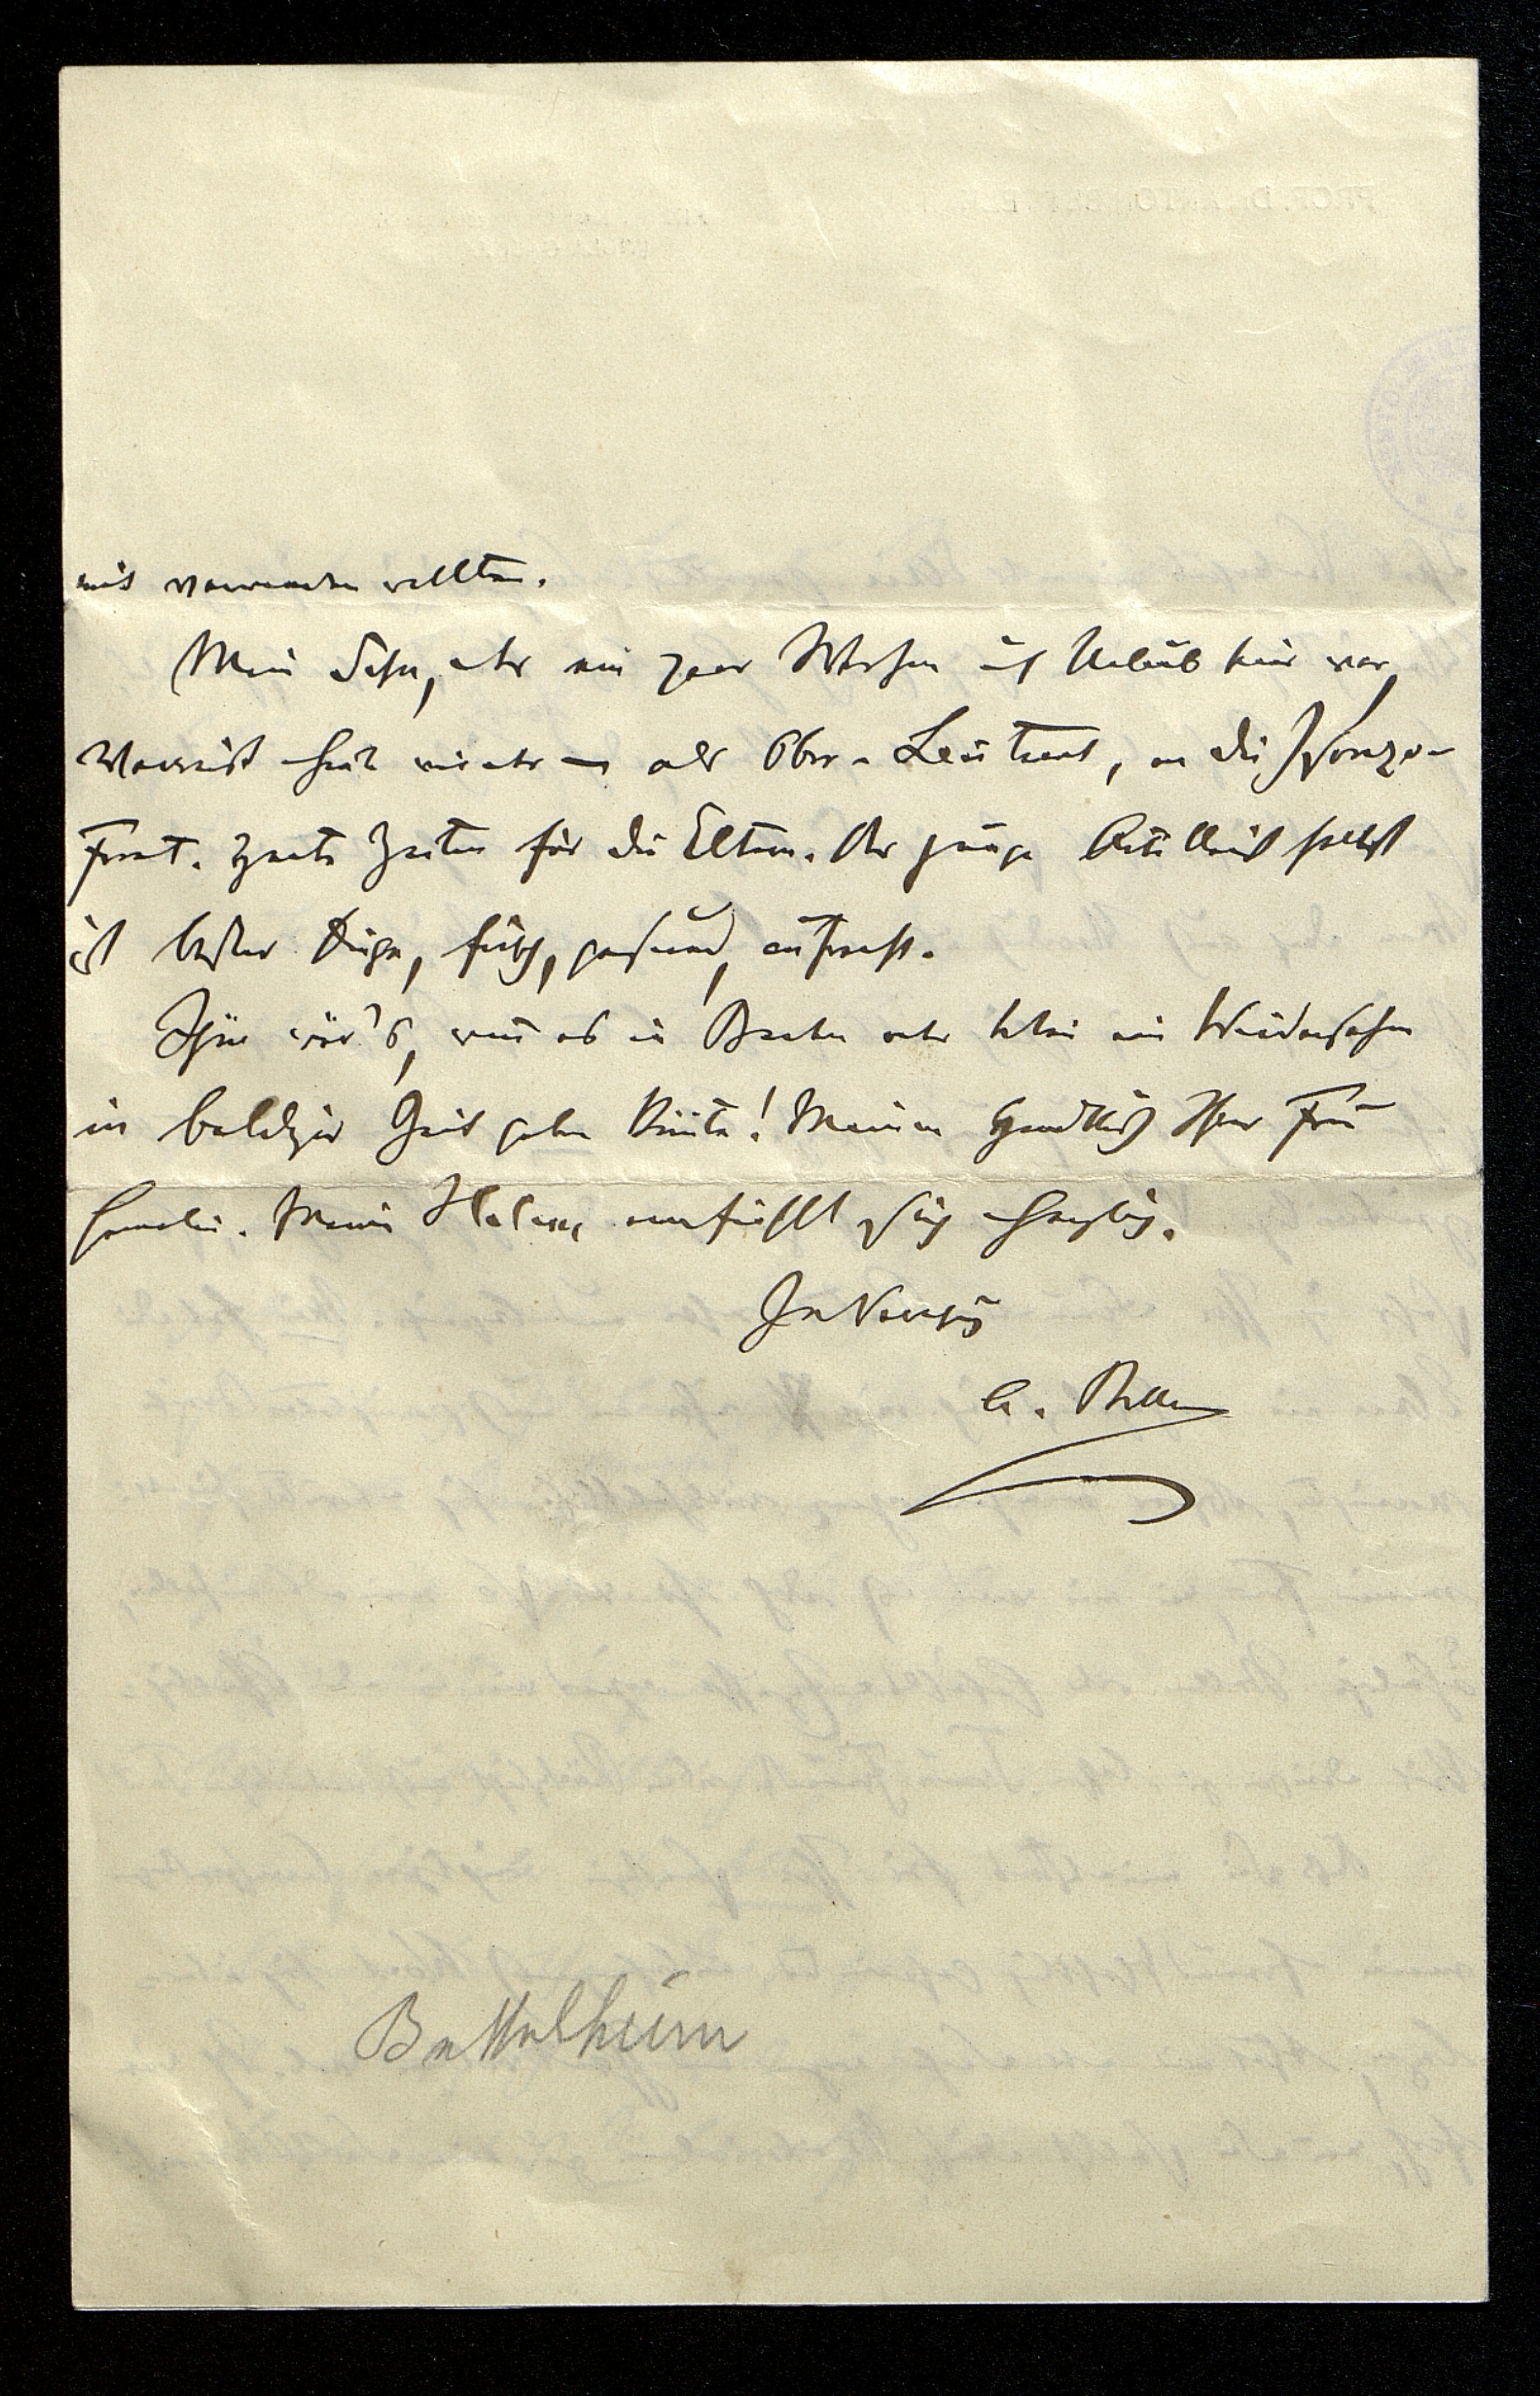 mir verwenden wollten.
Mein Sohn, der ein paar Wochen auf Urlaub hier war,
verreist heut wieder als Ober-Leutnant, an die Isonzo-
Front. Harte Zeiten für die Eltern. Der junge Artillerist selbst
ist bester Dinge, frisch, gesund, aufrecht.
Schön wär's, wenn es in Baden oder Wien ein Wiedersehen
in baldiger Zeit geben könnte! Meinen Handkuß Ihrer Frau
Gemalin. Meine Helene empfiehlt sich herzlich.
Ihr
A. Bettelheim
Bettelheim